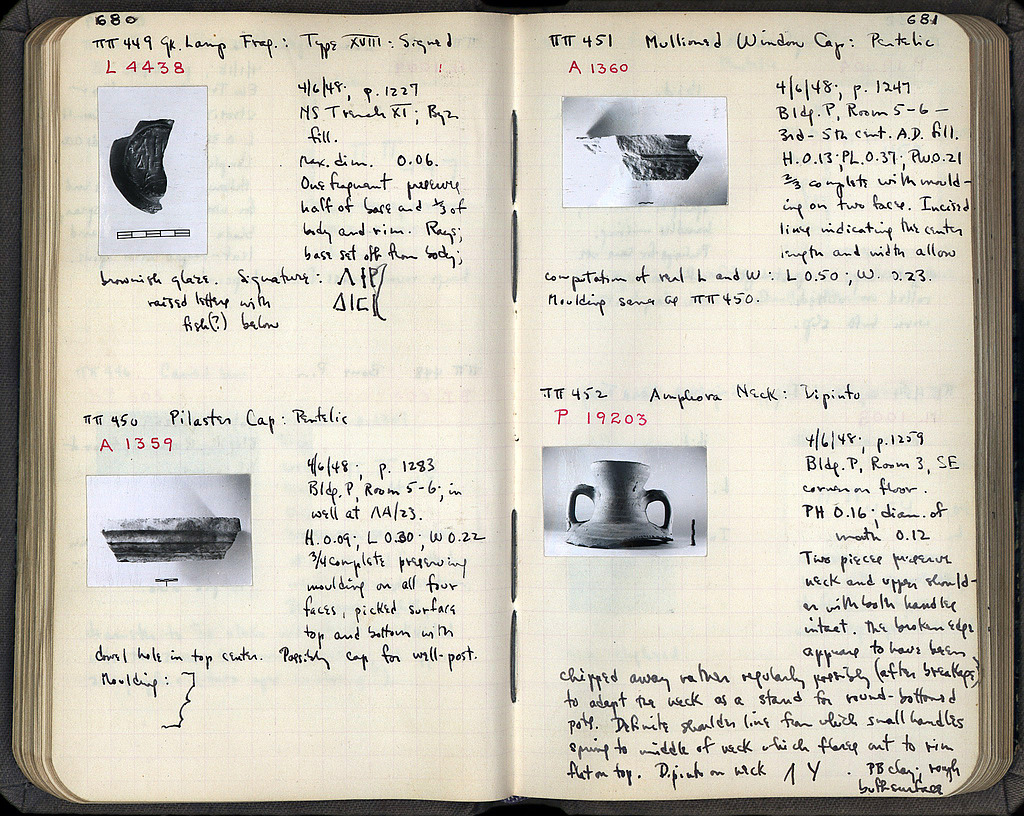 680
ΠΠ 449 Gk. Lamp Frag.: Type XVIII: Signed
L 4438 !
4/6/48; p. 1227
NS Trench XI; Byz
fill.
Max. dim. 0.06.
One fragment preserves
half of base and ⅓ of
body and rim. Rays;
base set off from body;
brownish glaze. Signature: ΛΙΡ
raised letters with ΔΙΟ
fish(?) below
ΠΠ 450 Pilaster Cap: Pentelic
A 1359
4/6/48; p. 1283
Bldg. P, Room 5-6; in
well at ΛΑ/23.
H. 0.09; L 0.30; W 0.22
¾ complete preserving
moulding on all four
faces, picked surface
top and bottom with
dowel hole in top center. Possibly cap for well-post.
Moulding:
681
ΠΠ 451 Mullioned Window Cap: Pentelic
A 1360
4/6/48; p. 1247
Bldg. P, Room 5-6 —
3rd-5th cent. A.D. fill.
H. 0.13; PL. 0.37; PW. 0.21
⅔ complete with mould-
ing on two faces. Incised
lines indicating the center
length and width allow
computation of real L and W: L 0.50; W. 0.23.
Moulding same as ΠΠ 450.
ΠΠ 452 Amphora Neck: Dipinto
P 19203
4/6/48; p. 1259
Bldg. P, Room 3, SE
corner on floor.
PH 0.16; diam. of
mouth 0.12
Two pieces preserve
neck and upper should-
er with both handles
intact. The broken edges
appear to have been
chipped away rather regularly possibly (after breakage)
to adapt the neck as a stand for round-bottomed
pots. Definite shoulder line from which small handles
spring to middle of neck which flares out to rim
flat on top. Dipinto on neck Λ Υ . PB clay; rough
buff surface